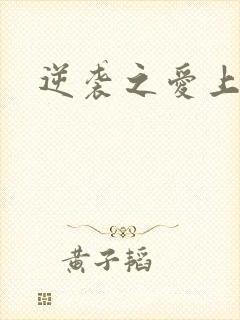 逆袭之愛上
黄子韬